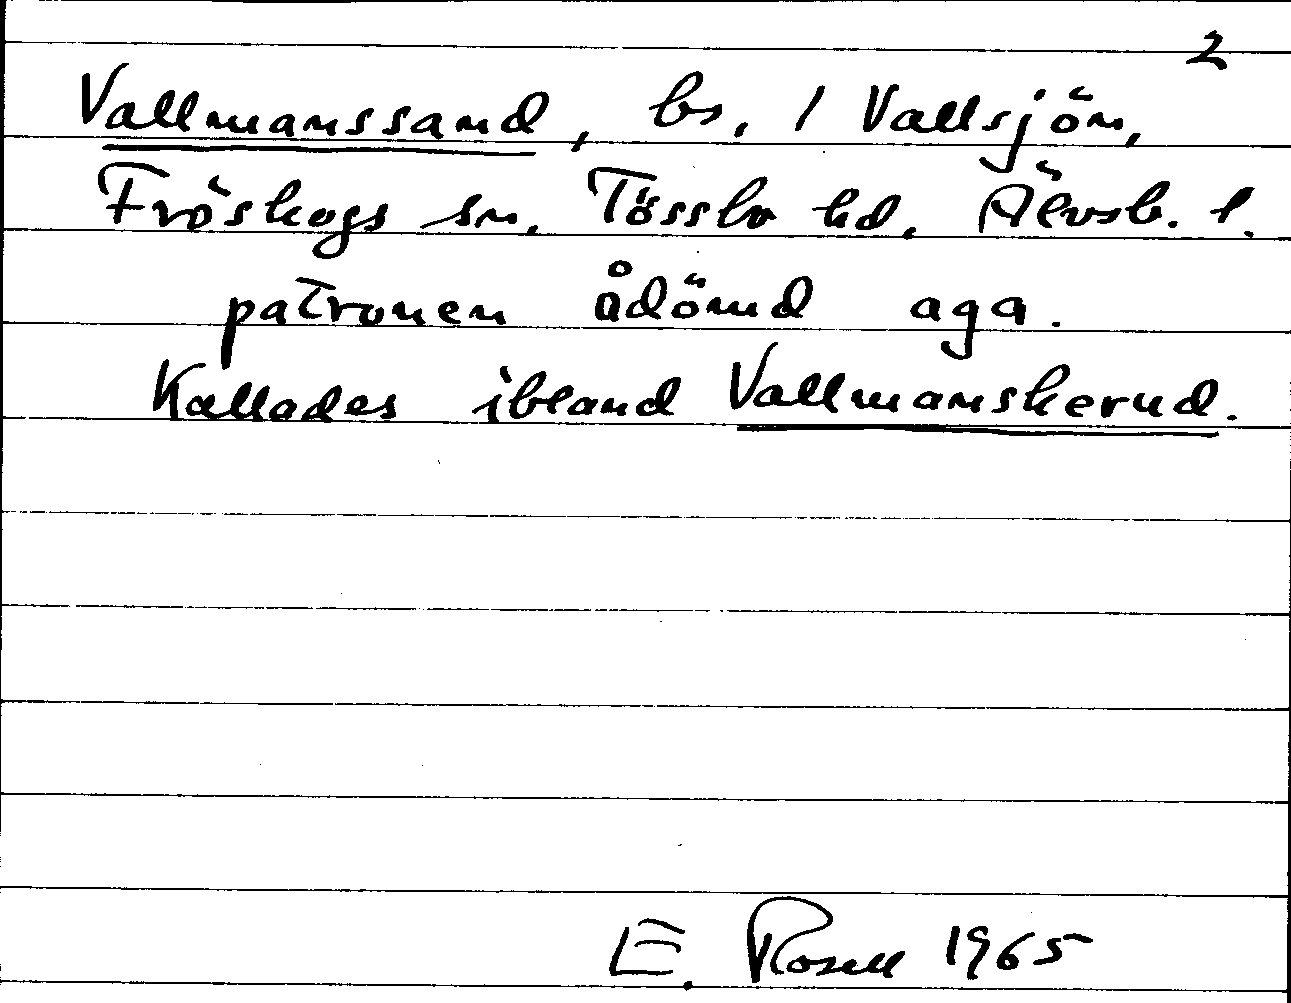 2
Vallmanssand, bs. / Vallsjön,
Fröskogs sn. Tössbo hd. Älvsb. l.
patronen ådömd aga.
Kallades ibland Vallmanskerud.
E. Rosell 1965